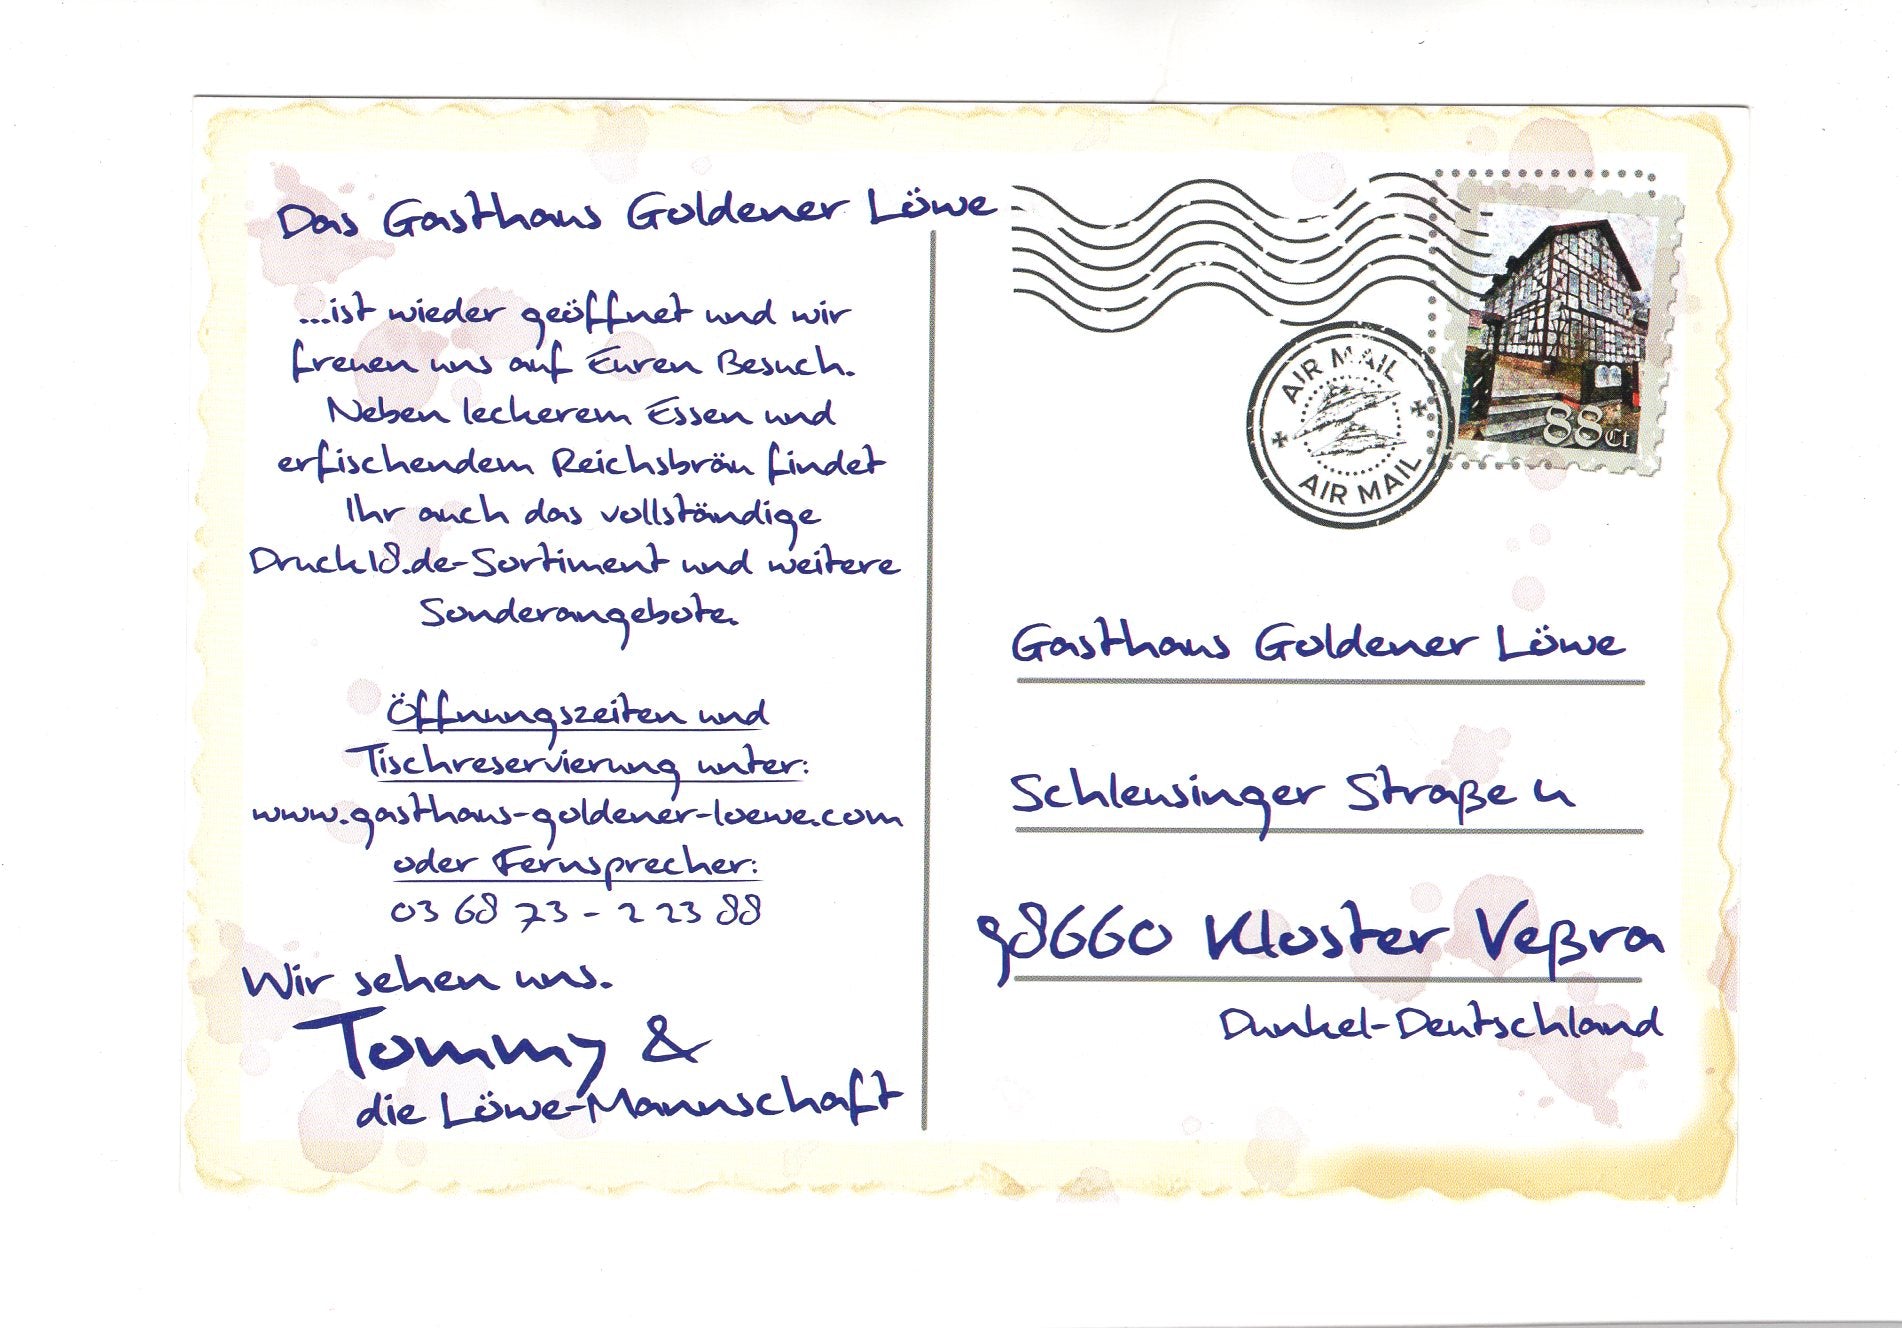 Das Gasthaus Goldener Löwe
...ist wieder geöffnet und wir
freuen uns auf Euren Besuch.
Neben leckerem Essen und
erfischendem Reichsbräu findet
Ihr auch das vollständige
Druck18.de-Sortiment und weitere
Sonderangebote.
Öffnungszeiten und
Tischreservierung unter:
www.gasthaus-goldener-loewe.com
oder Fernsprecher:
03 68 73 - 2 23 88
Wir sehen uns.
Tommy &
die Löwe-Mannschaft
88 Ct
AIR MAIL
AIR MAIL
Gasthaus Goldener Löwe
Schleusinger Straße 4
98660 Kloster Veßra
Dunkel-Deutschland